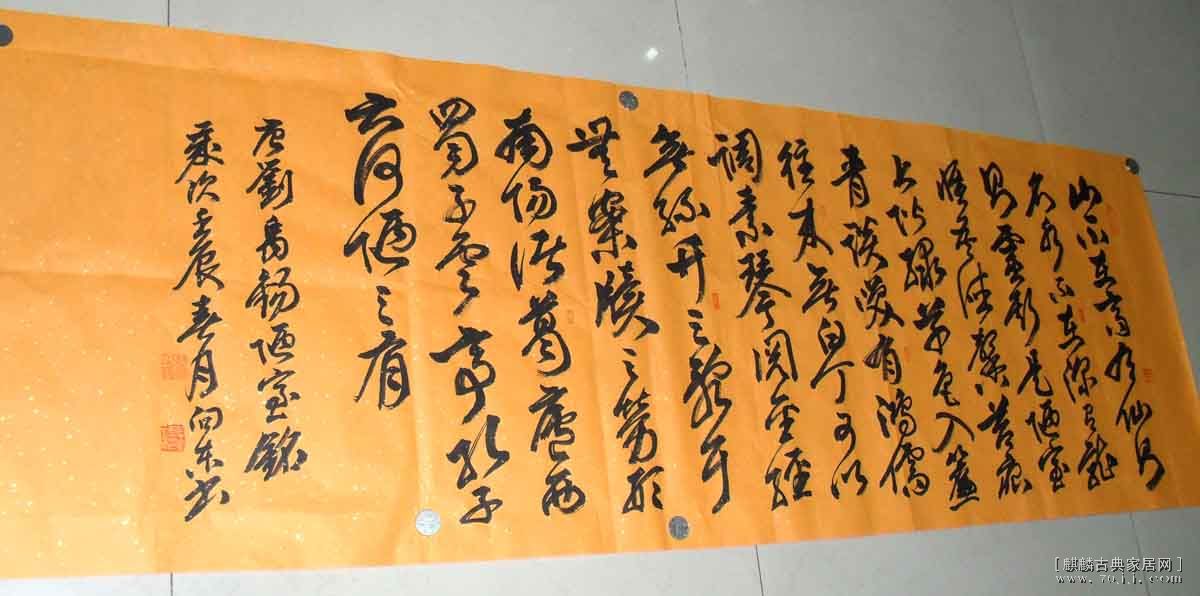 山不在高有仙則
名水不在深有龍
則靈斯是陋室
惟吾德馨苔痕
上階綠草色入簾
青談笑有鴻儒
往來無白丁可以
調素琴閱金經
無絲竹之亂耳
無案牘之勞形
南陽諸葛廬西
蜀子雲亭孔子
云何陋之有
唐劉禹錫陋室銘
歲次壬辰春月向东书
[麒麟古典家居网]
www.70jj.com